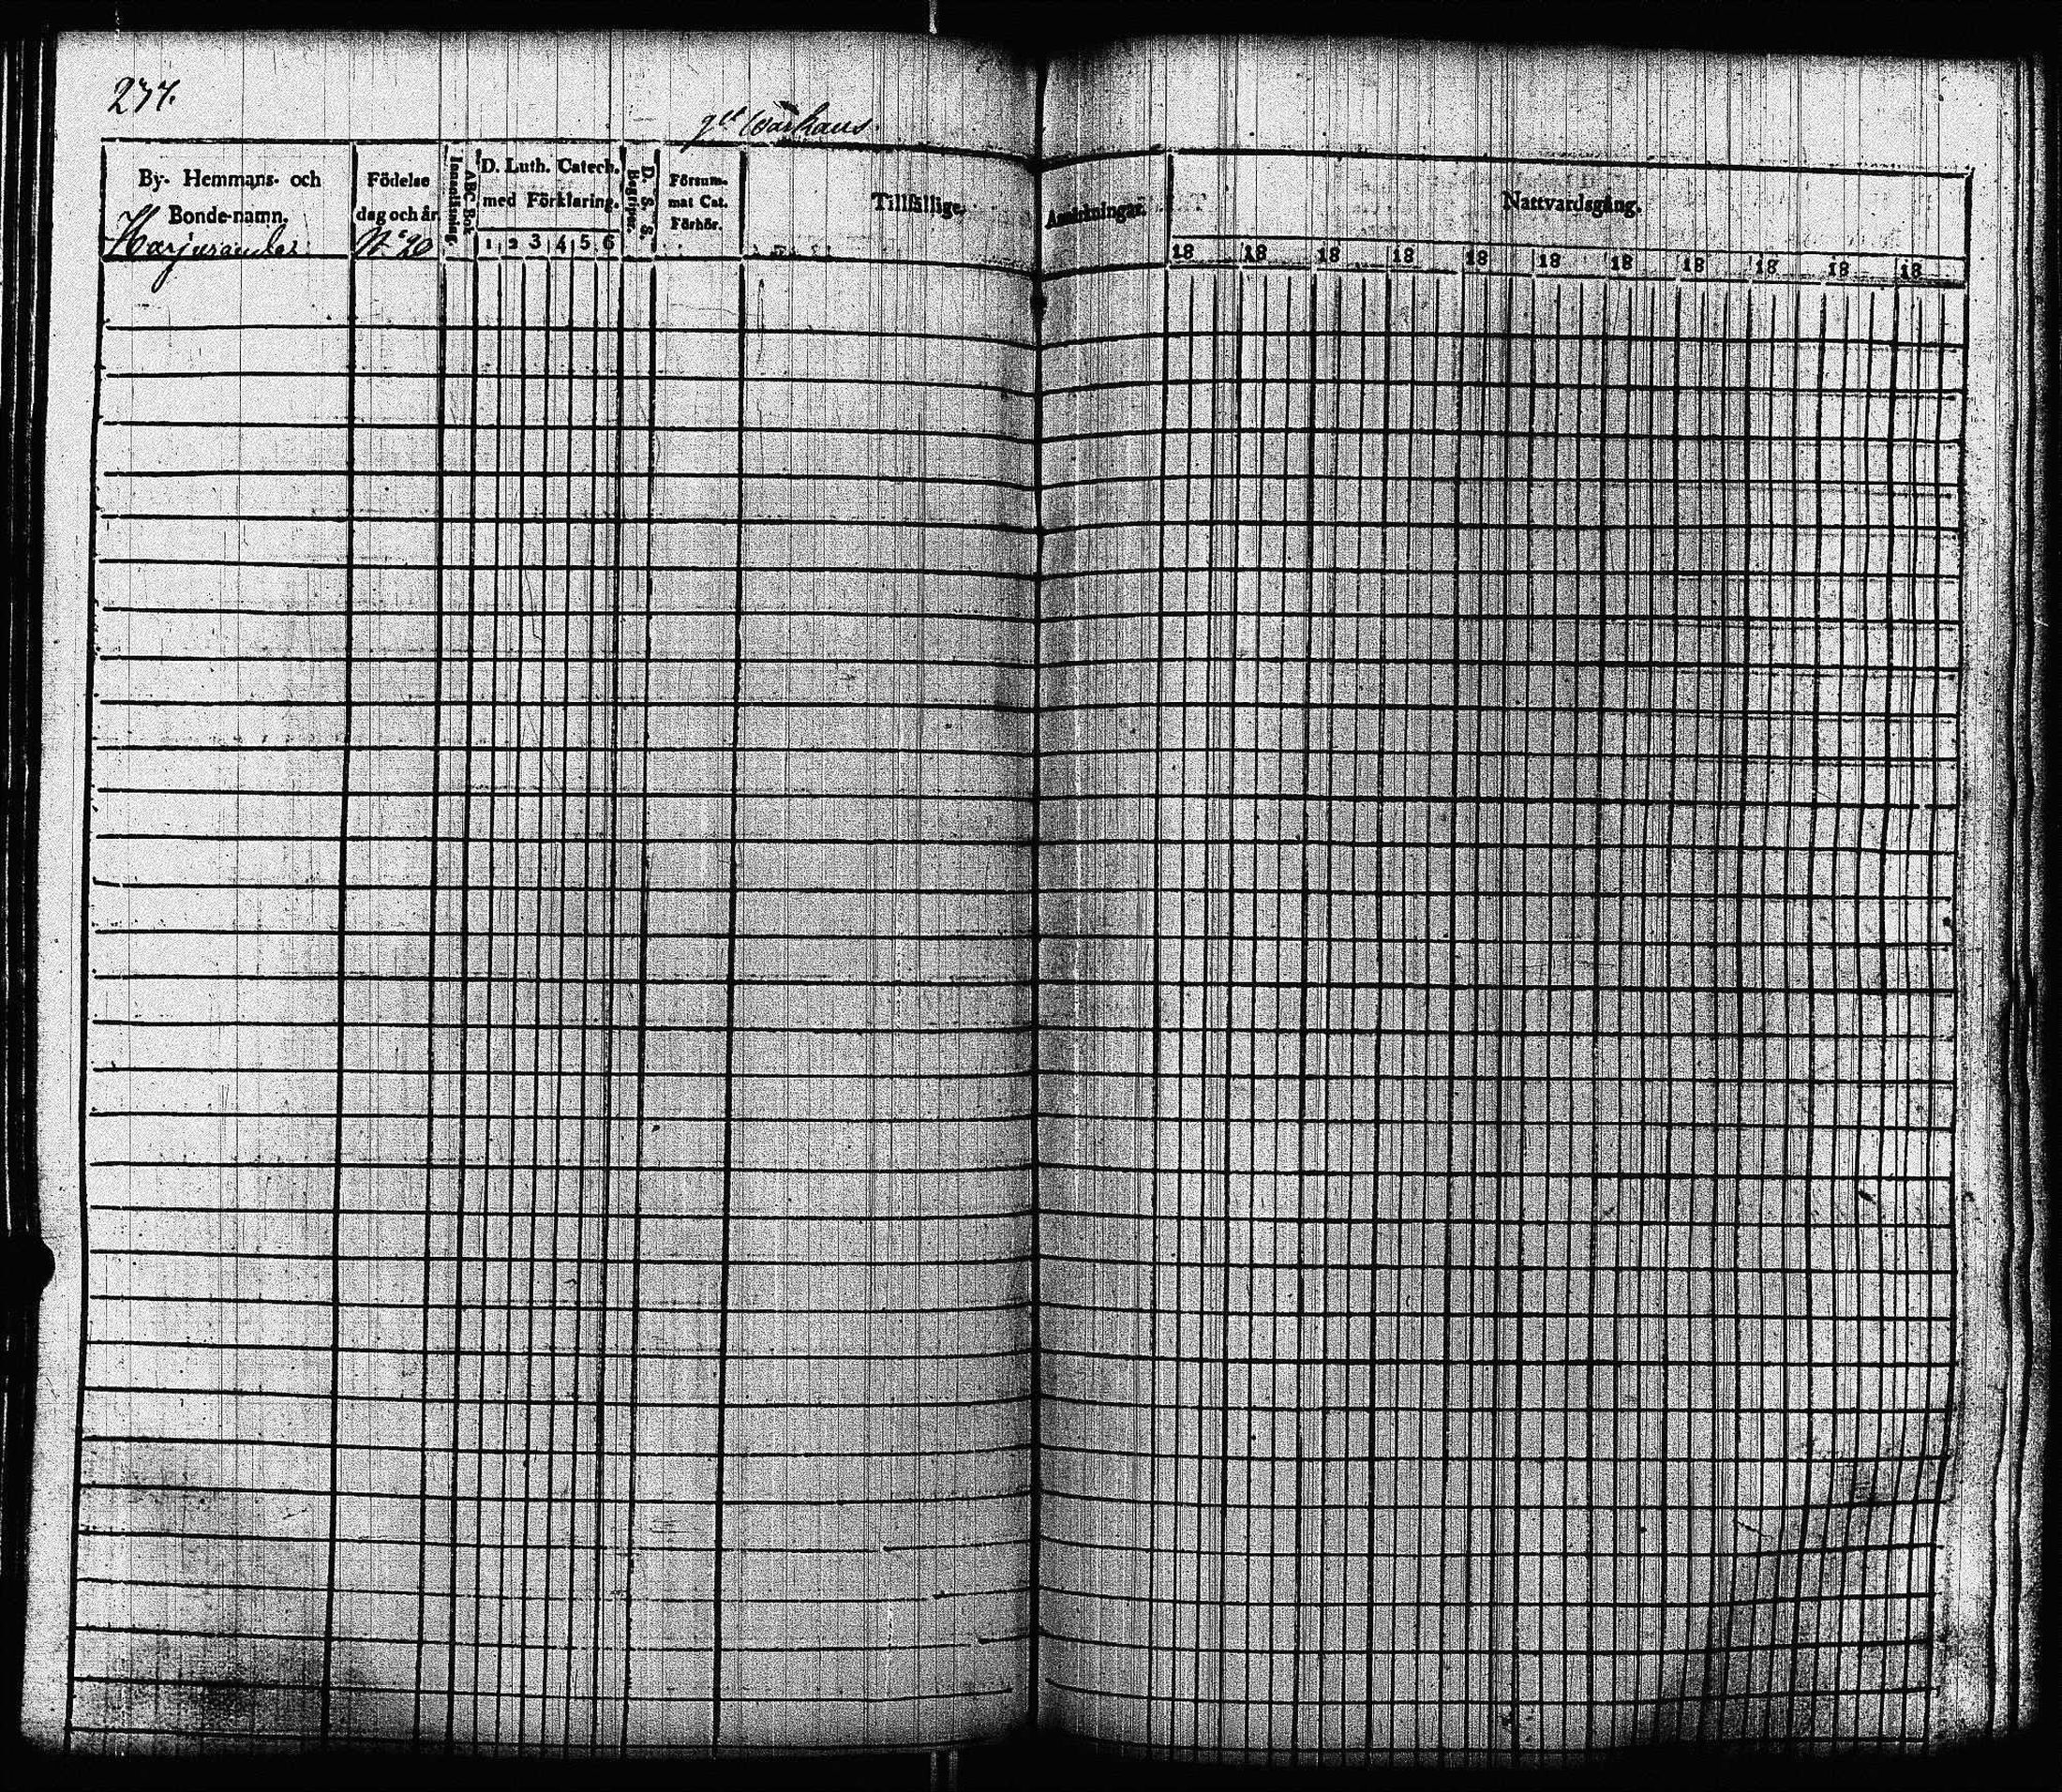 277.
gll Warkaus.
By- Hemmans- och Bonde-namn.
Födelse dag och år.
Innanläsning.
ABC Bok
D. Luth. Catech. med Förklaring.
1 2 3 4 5 6
D. S. S. Begriper.
Försum- mat Cat. Förhör.
Tillfällige
Anmärkningar.
Nattvardsgång.
18 18 18 18 18 18 18 18 18 18 18
Harjurander N:o 20